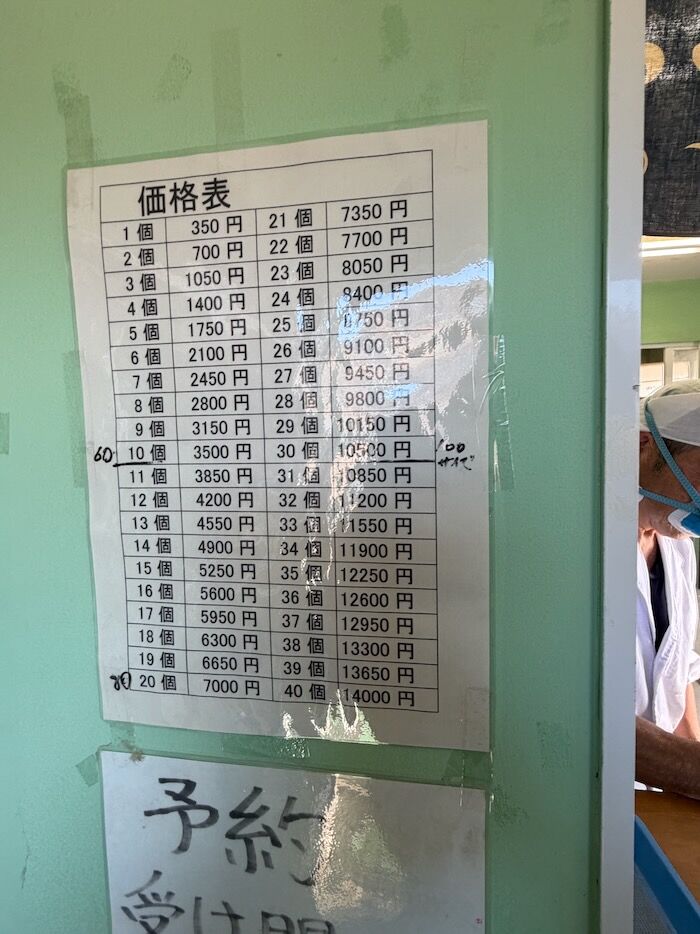 価格表
1 個 350 円 21 個 7350 円
2 個 700 円 22 個 7700 円
3 個 1050 円 23 個 8050 円
4 個 1400 円 24 個 8400 円
5 個 1750 円 25 個 8750 円
6 個 2100 円 26 個 9100 円
7 個 2450 円 27 個 9450 円
8 個 2800 円 28 個 9800 円
9 個 3150 円 29 個 10150 円
60 10 個 3500 円 30 個 10500 円 100
サイズ
11 個 3850 円 31 個 10850 円
12 個 4200 円 32 個 11200 円
13 個 4550 円 33 個 11550 円
14 個 4900 円 34 個 11900 円
15 個 5250 円 35 個 12250 円
16 個 5600 円 36 個 12600 円
17 個 5950 円 37 個 12950 円
18 個 6300 円 38 個 13300 円
19 個 6650 円 39 個 13650 円
80 20 個 7000 円 40 個 14000 円
予約
受け